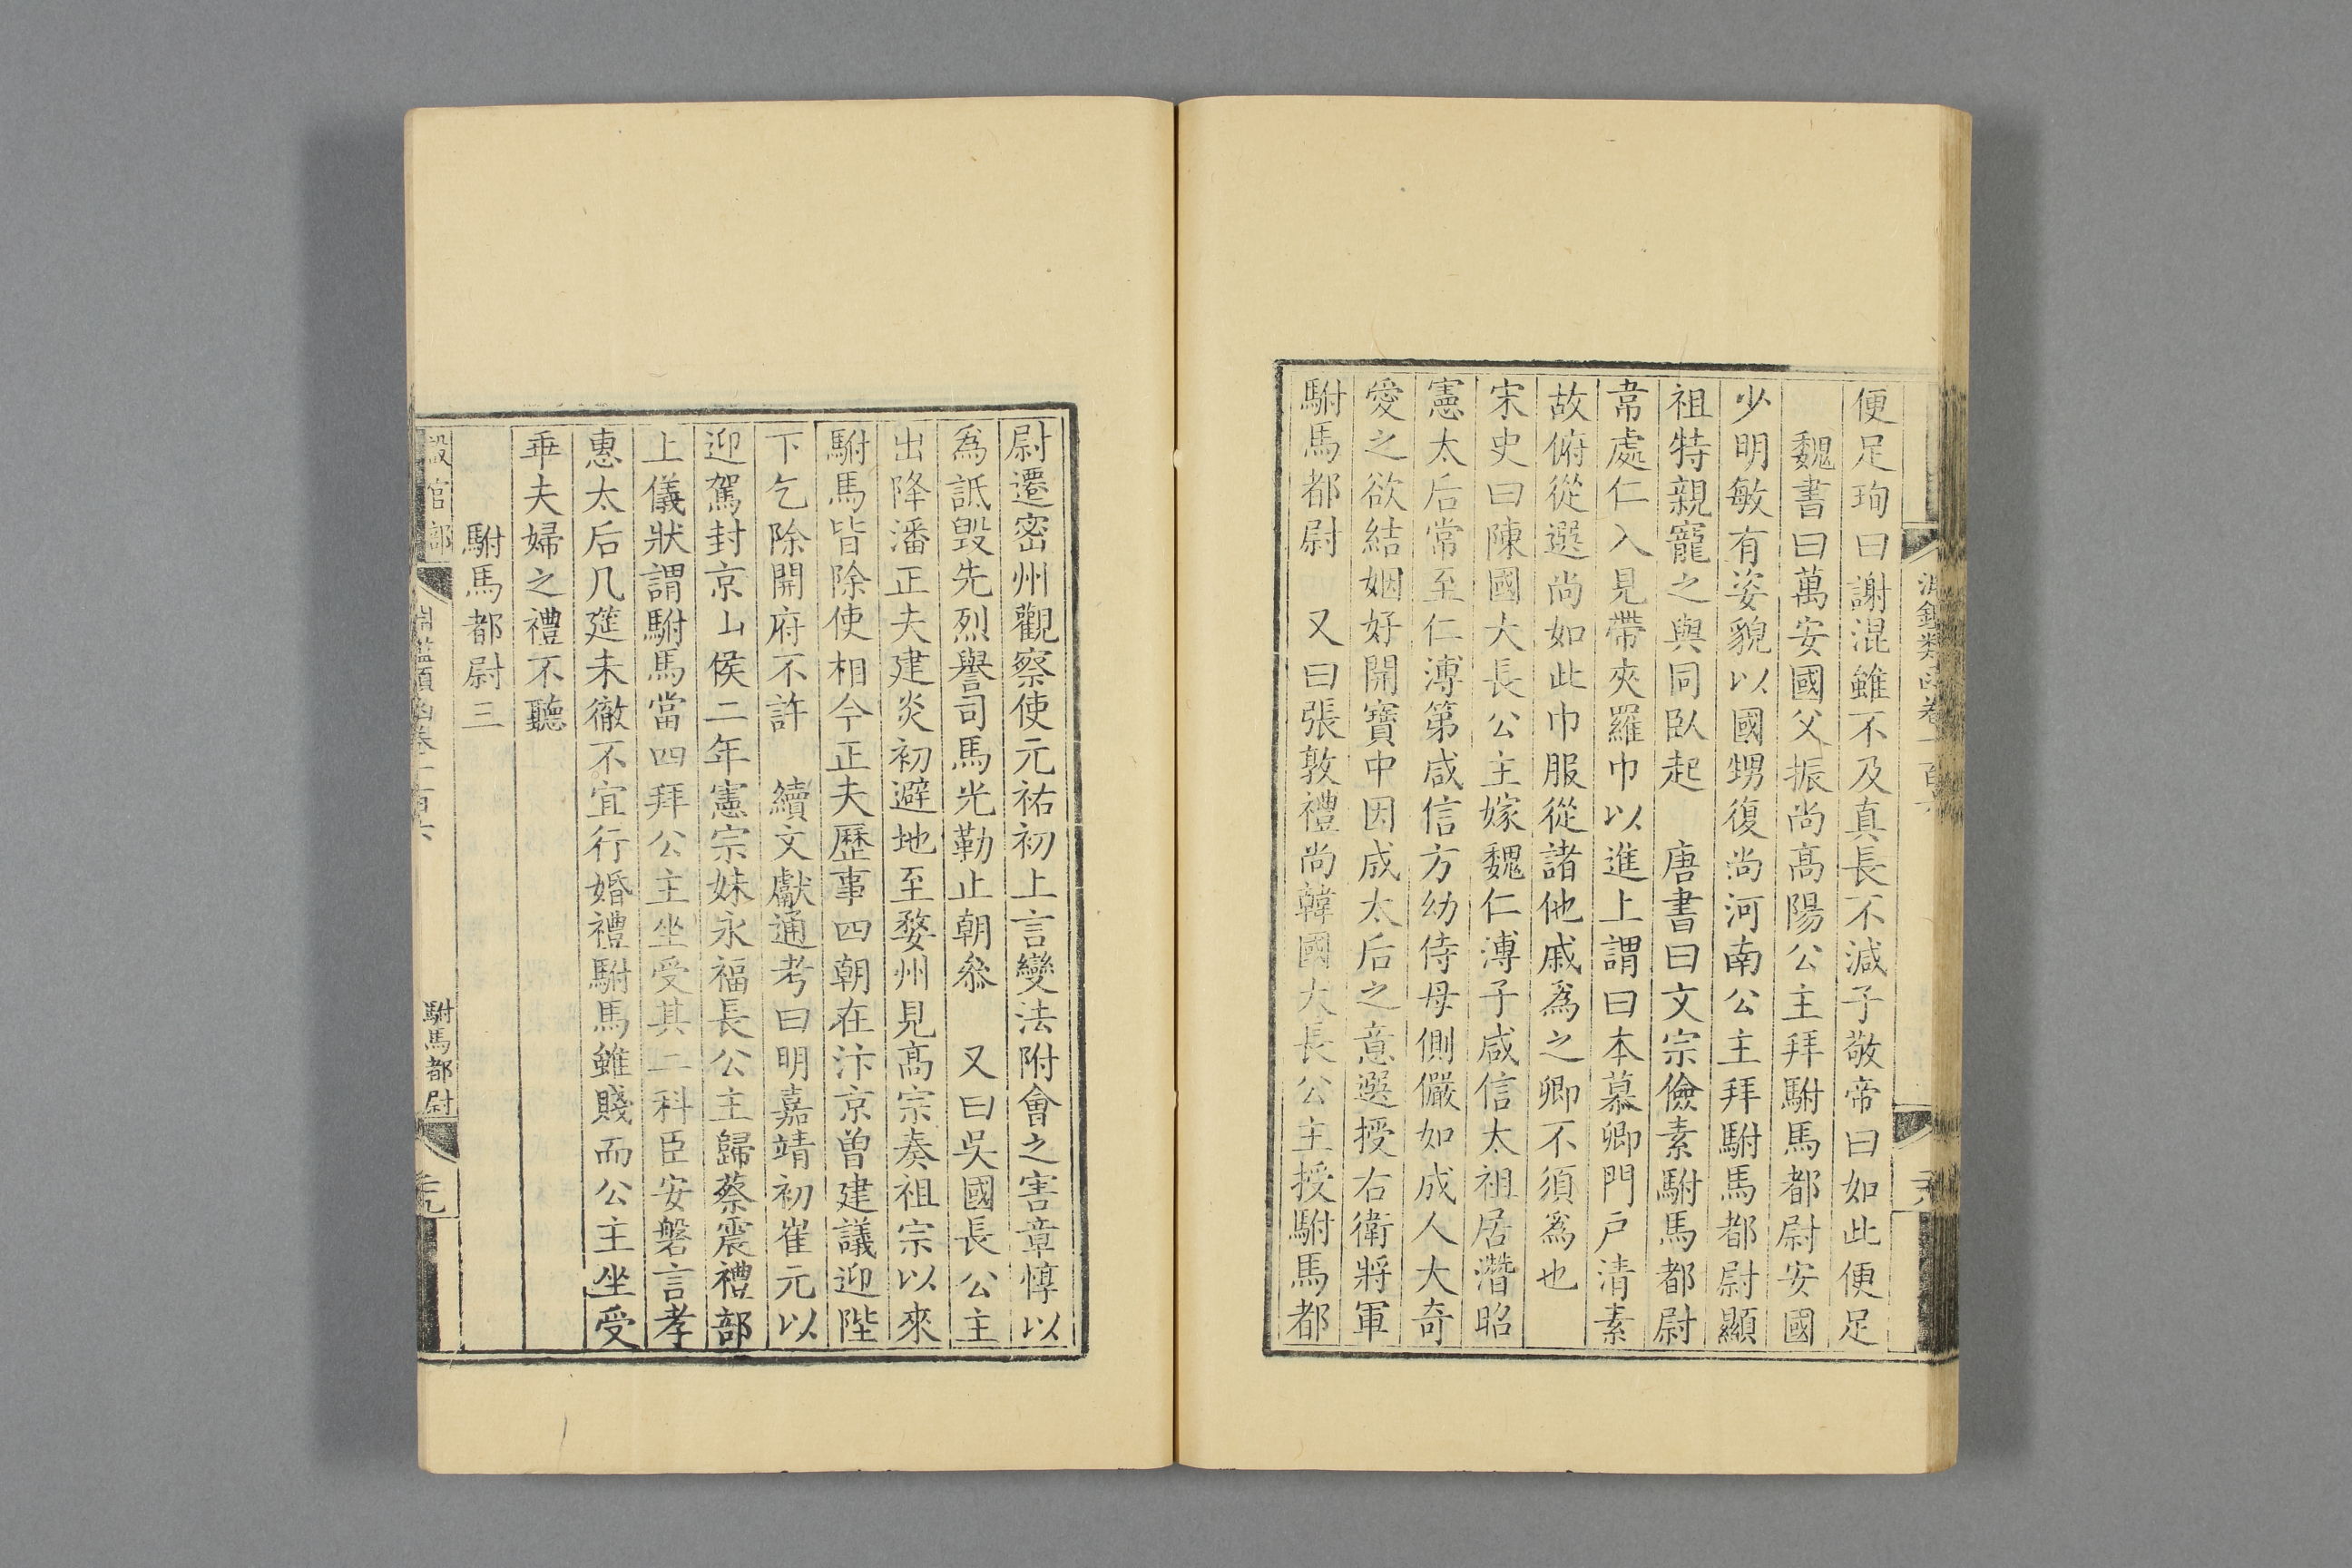 便足珣曰謝混雖不及真長不減子敬帝曰如此便足
魏書曰萬安國父振尚高陽公主拜駙馬都尉安國
少明敏有姿貌以國甥復尚河南公主拜駙馬都尉顯
祖特親寵之與同臥起　唐書曰文宗儉素駙馬都尉
韋處仁入見帶夾羅巾以進上謂曰本慕卿門戶清素
故俯從選尚如此巾服從諸他戚爲之卿不須爲也
宋史曰陳國大長公主嫁魏仁溥子咸信太祖居潛昭
憲太后常至仁溥第咸信方幼侍母側儼如成人大奇
愛之欲結姻好開寶中因成太后之意選授右衛將軍
駙馬都尉　又曰張敦禮尚韓國大長公主授駙馬都
尉遷密州觀察使元祐初上言變法附會之害章惇以
爲詆毀先烈譽司馬光勒止朝叅　又曰吳國長公主
出降潘正夫建炎初避地至婺州見高宗奏祖宗以來
駙馬皆除使相今正夫歷事四朝在汴京曾建議迎陛
下乞除開府不許　續文獻通考曰明嘉靖初崔元以
迎駕封京山侯二年憲宗妹永福長公主歸蔡震禮部
上儀狀謂駙馬當四拜公主坐受其二科臣安磐言孝
惠太后几筵未徹不宜行婚禮駙馬雖賤而公主坐受
乖夫婦之禮不聽
駙馬都尉三
設官部
淵鑑類函卷一百六
駙馬都尉